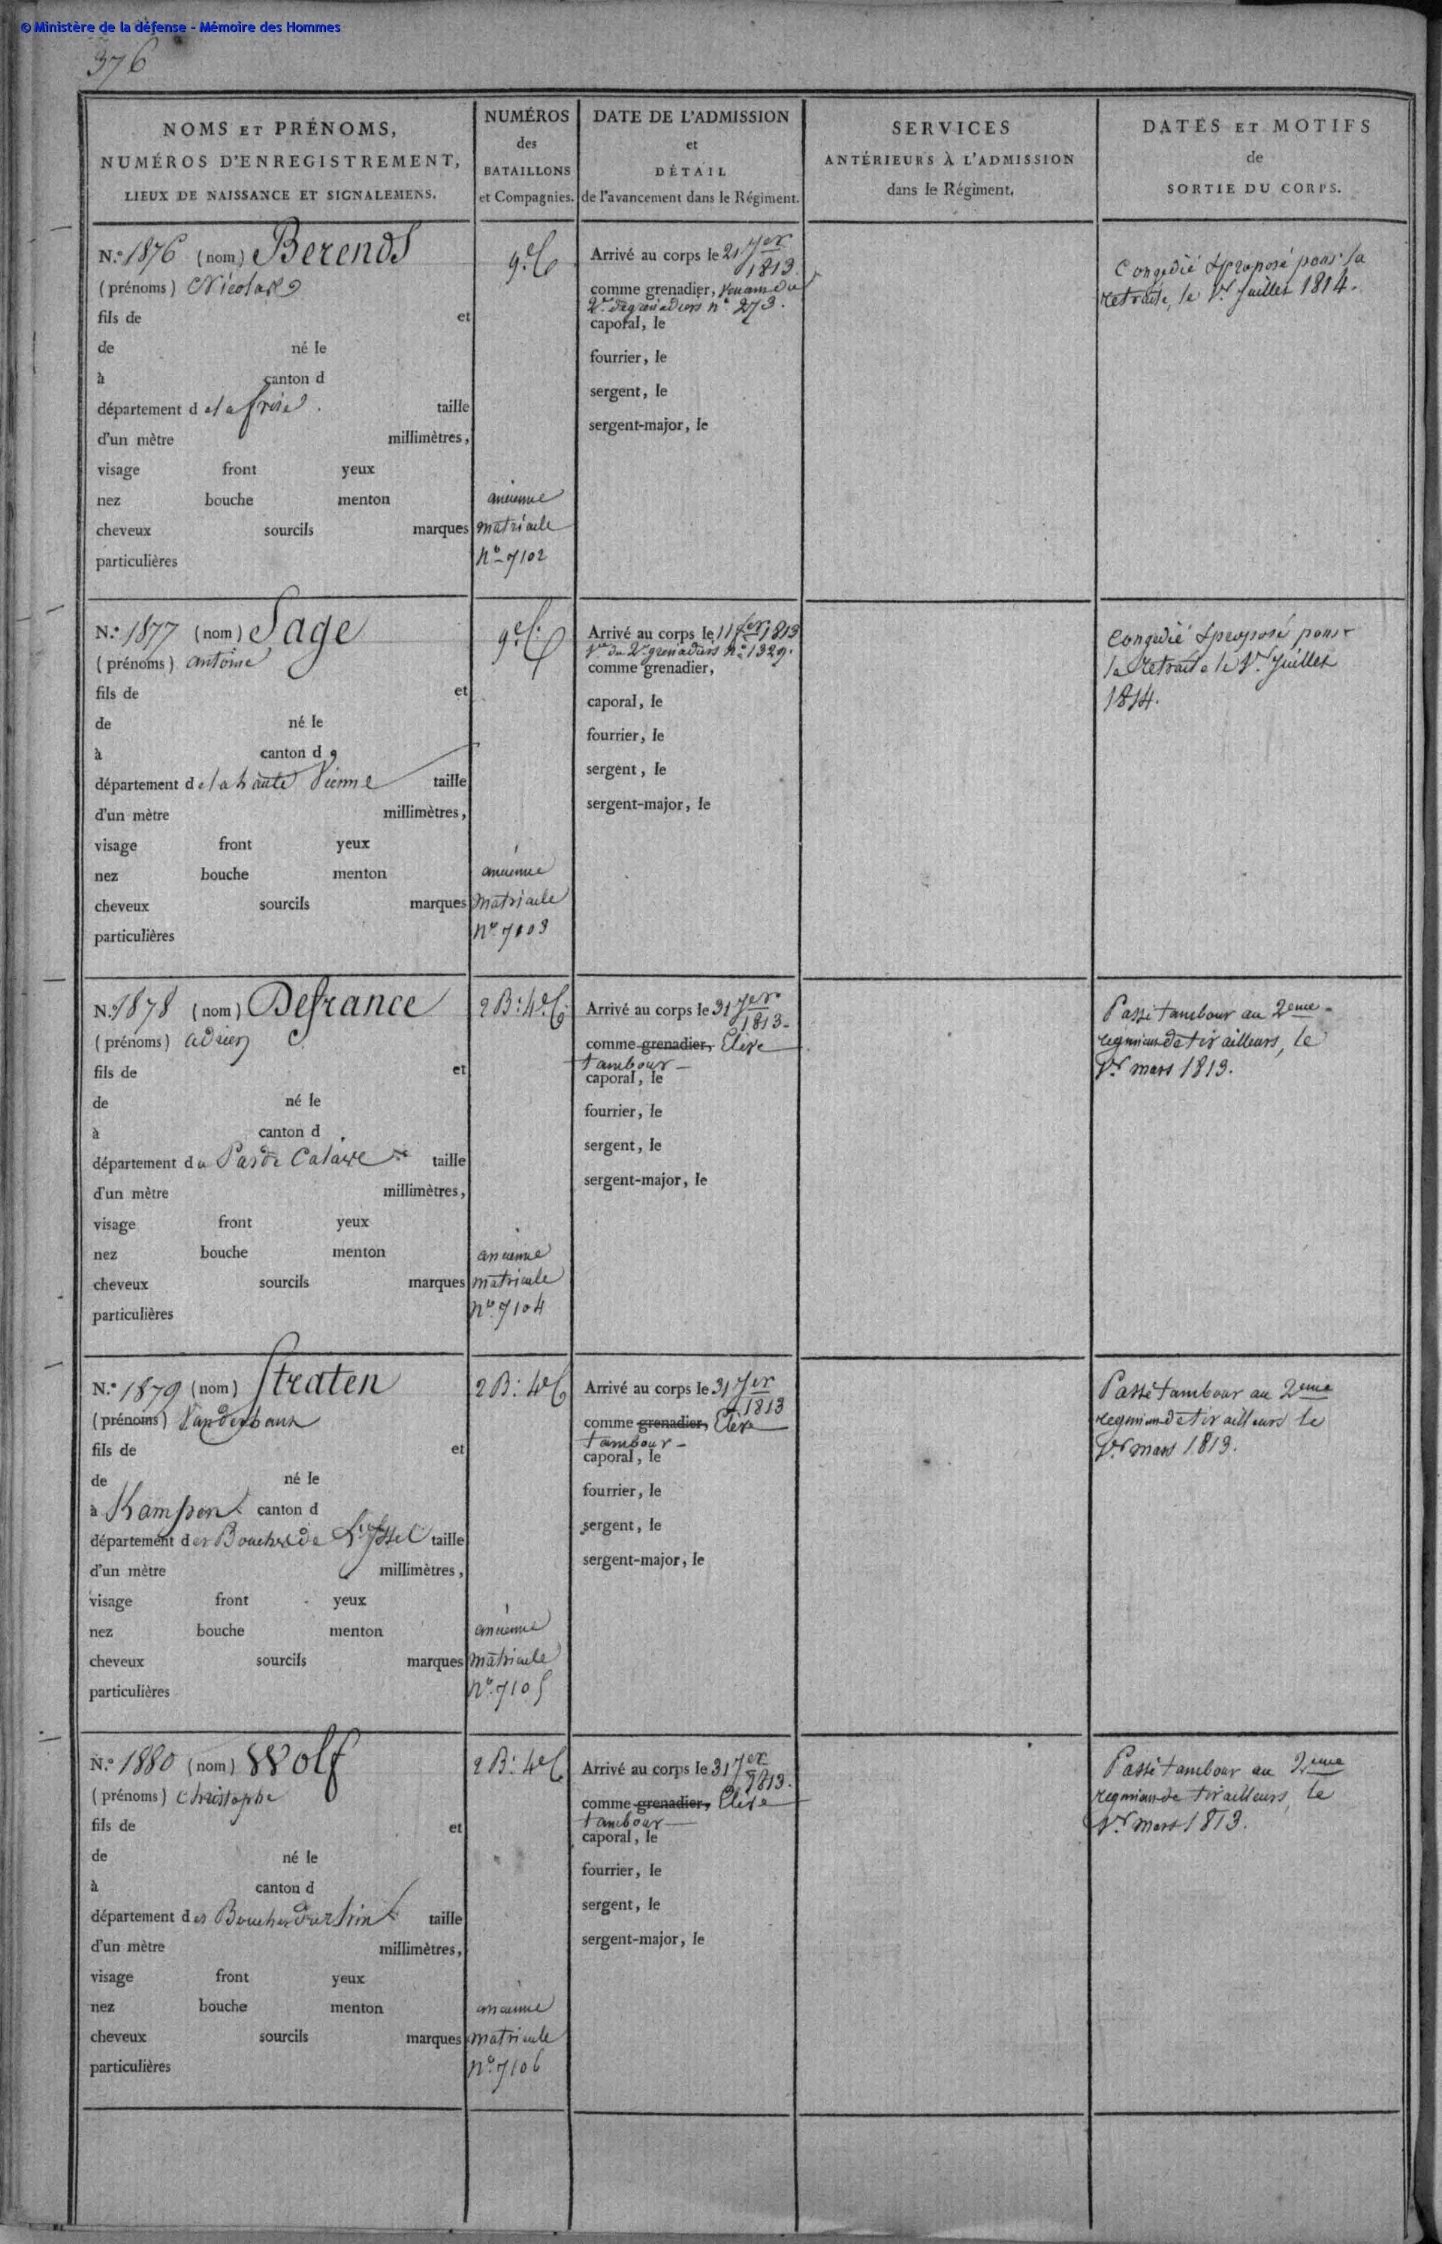 © Ministère de la défense - Mémoire des Hommes
376
NOMS ET PRÉNOMS,
NUMÉROS D'ENREGISTREMENT,
LIEUX DE NAISSANCE ET SIGNALEMENS.
NUMÉROS
des
BATAILLONS
et Compagnies.
DATE DE L'ADMISSION
et
DÉTAIL
de l'avancement dans le Régiment.
SERVICES
ANTÉRIEURS À L'ADMISSION
dans le Régiment.
DATES ET MOTIFS
de
SORTIE DU CORPS.
N.º 1876 (nom) Berends
(prénoms) Nicolas
fils de et
de né le
à canton d
département de la frise taille
d'un mètre millimètres,
visage front yeux
nez bouche menton
cheveux sourcils marques
particulières
9.e C
ancienne
matricule
Nº 7102
Arrivé au corps le 21 Jer
1813.
comme grenadier, venant du
2e de grenadiers nº 273.
caporal, le
fourrier, le
sergent, le
sergent-major, le
Congedié & proposé pour la
retraite, le 1er Juillet 1814.
N.º 1877 (nom) Sage
(prénoms) antoine
fils de et
de né le
à canton d
département de la haute Vienne taille
d'un mètre millimètres,
visage front yeux
nez bouche menton
cheveux sourcils marques
particulières
9.e C.
ancienne
matricule
Nº 7103
Arrivé au corps le 11 fer 1813
Vt du 2e grenadiers nº 1329.
comme grenadier,
caporal, le
fourrier, le
sergent, le
sergent-major, le
Congedié & proposé pour
la retraite le 1er Juillet
1814.
N.º 1878 (nom) Defrance
(prénoms) adrien
fils de et
de né le
à canton d
département du Pas de Calais taille
d'un mètre millimètres,
visage front yeux
nez bouche menton
cheveux sourcils marques
particulières
2 B: 4e C.
ancienne
matricule
Nº 7104
Arrivé au corps le 31 Jer
1813.
comme grenadier, Elève
tambour
caporal, le
fourrier, le
sergent, le
sergent-major, le
Passé tambour au 2eme
regiment de tirailleurs, le
1er mars 1813.
N.º 1879 (nom) Straten
(prénoms)
fils de et
de né le
à Kampen canton d
département des Bouches de L'Yssel taille
d'un mètre millimètres,
visage front yeux
nez bouche menton
cheveux sourcils marques
particulières
2 B: 4e C
ancienne
matricule
Nº 7105
Arrivé au corps le 31 Jer
1813
comme grenadier, Elève
tambour
caporal, le
fourrier, le
sergent, le
sergent-major, le
Passé tambour au 2eme
regiment de tirailleurs le
1er mars 1813.
N.º 1880 (nom) Wolf
(prénoms) Christophe
fils de et
de né le
à canton d
département des Bouches du rhin taille
d'un mètre millimètres,
visage front yeux
nez bouche menton
cheveux sourcils marques
particulières
2 B: 4e C
ancienne
matricule
Nº 7106
Arrivé au corps le 31 Jer
1813.
comme grenadier, Elève
tambour
caporal, le
fourrier, le
sergent, le
sergent-major, le
Passé tambour au 2eme
regiment de tirailleurs, le
1er mars 1813.